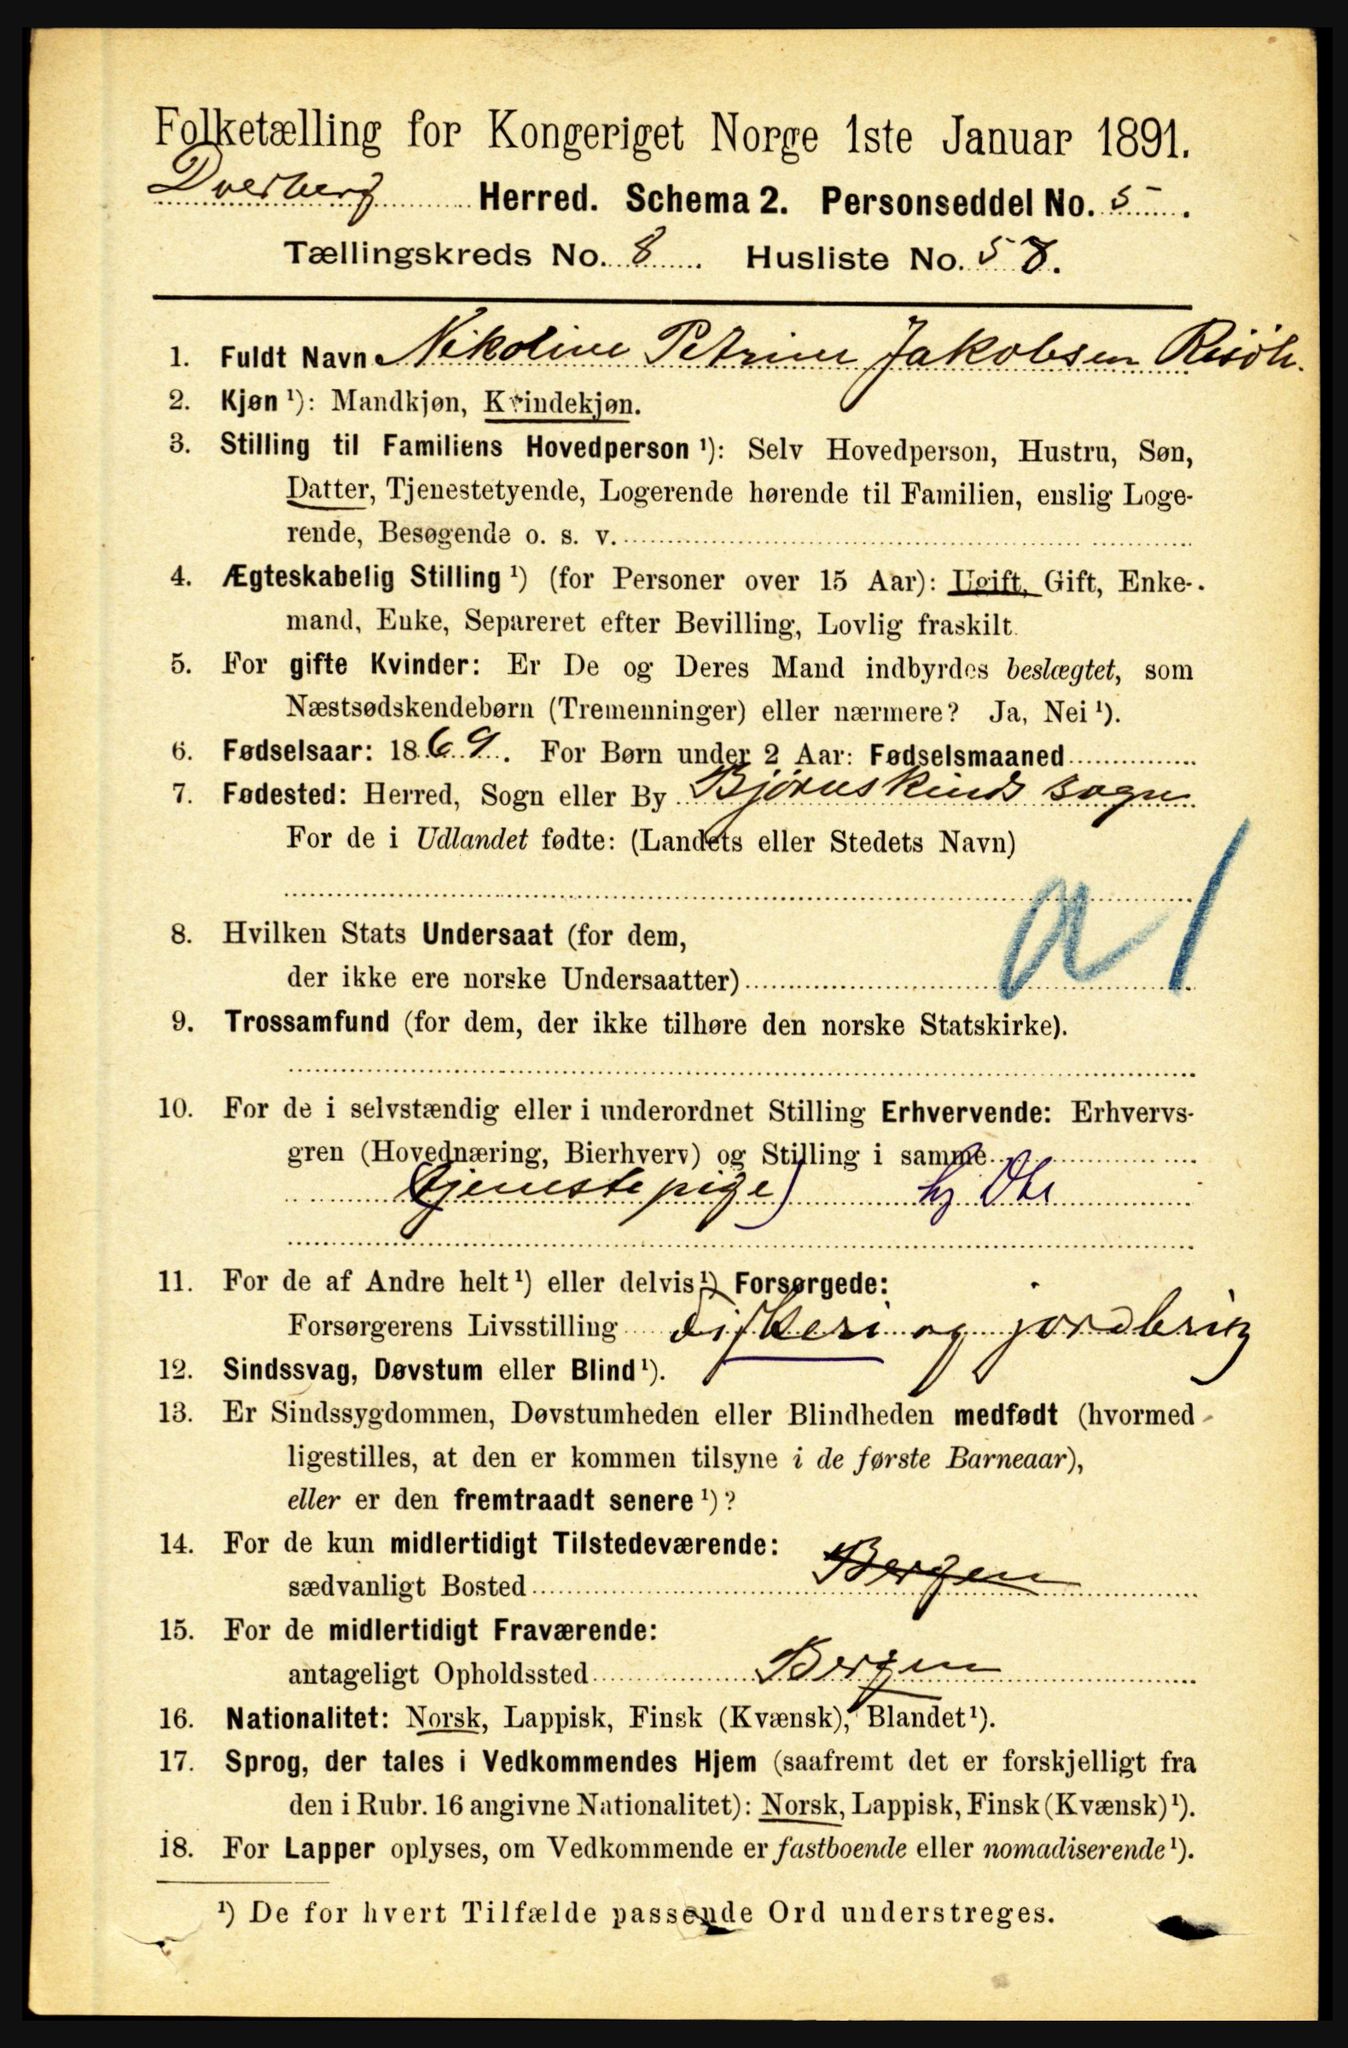 Folketælling for Kongeriget Norge 1ste Januar 1891.
Dverberg Herred. Schema 2. Personseddel No. 5.
Tællingskreds No. 8 Husliste No. 58.
1. Fuldt Navn Nikoline Petrine Jakobsen Risøh.
2. Kjøn ¹): Mandkjøn, Kvindekjøn.
3. Stilling til Familiens Hovedperson ¹): Selv Hovedperson, Hustru, Søn,
Datter, Tjenestetyende, Logerende hørende til Familien, enslig Loge-
rende, Besøgende o. s. v.
4. Ægteskabelig Stilling ¹) (for Personer over 15 Aar): Ugift, Gift, Enke-
mand, Enke, Separeret efter Bevilling, Lovlig fraskilt.
5. For gifte Kvinder: Er De og Deres Mand indbyrdes beslægtet, som
Næstsødskendebørn (Tremenninger) eller nærmere? Ja, Nei ¹).
6. Fødselsaar: 1869. For Børn under 2 Aar: Fødselsmaaned
7. Fødested: Herred, Sogn eller By Bjørnskinds sogn
For de i Udlandet fødte: (Landets eller Stedets Navn)
a 1
8. Hvilken Stats Undersaat (for dem,
der ikke ere norske Undersaatter)
9. Trossamfund (for dem, der ikke tilhøre den norske Statskirke).
10. For de i selvstændig eller i underordnet Stilling Erhvervende: Erhvervs-
gren (Hovednæring, Bierhverv) og Stilling i samme
(Tjenestepige)
11. For de af Andre helt ¹) eller delvis ¹) Forsørgede:
Forsørgerens Livsstilling fiskeri og jordbrug
12. Sindssvag, Døvstum eller Blind ¹).
13. Er Sindssygdommen, Døvstumheden eller Blindheden medfødt (hvormed
ligestilles, at den er kommen tilsyne i de første Barneaar),
eller er den fremtraadt senere ¹)?
14. For de kun midlertidigt Tilstedeværende:
sædvanligt Bosted Bergen
15. For de midlertidigt Fraværende:
antageligt Opholdssted Bergen
16. Nationalitet: Norsk, Lappisk, Finsk (Kvænsk), Blandet ¹).
17. Sprog, der tales i Vedkommendes Hjem (saafremt det er forskjelligt fra
den i Rubr. 16 angivne Nationalitet): Norsk, Lappisk, Finsk (Kvænsk) ¹).
18. For Lapper oplyses, om Vedkommende er fastboende eller nomadiserende ¹).
¹) De for hvert Tilfælde passende Ord understreges.